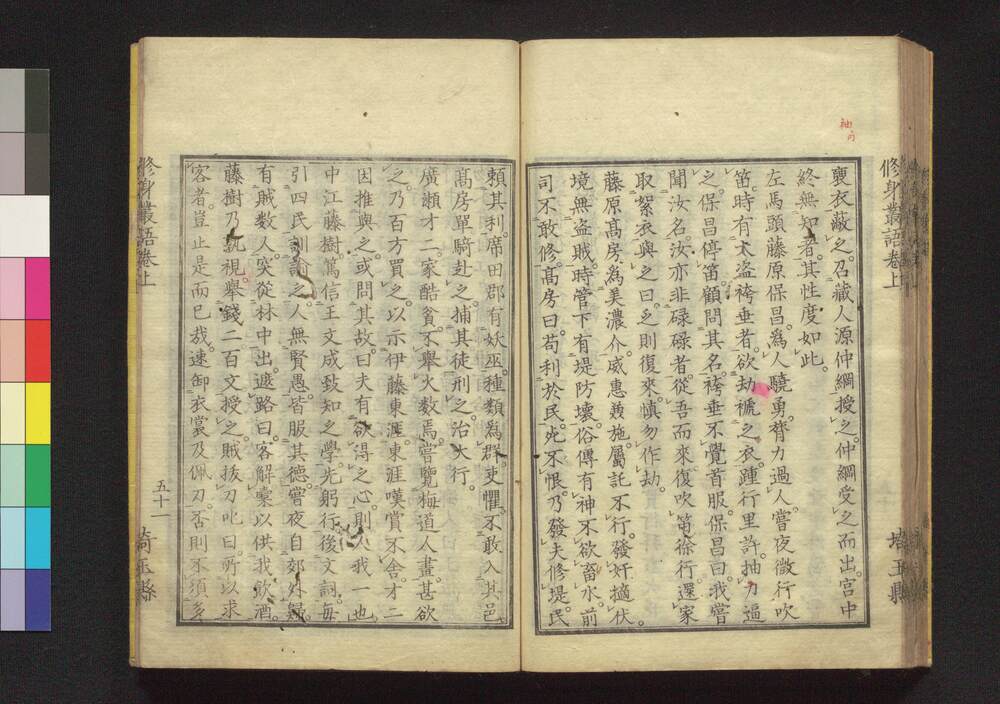 修身叢語卷上
褻衣蔽之。召藏人源仲綱授之。仲綱受之而出。宮中
終無知者。其性度如此。
左馬頭藤原保昌。為人驍勇。膂力過人。嘗夜微行吹
笛。時有大盜袴垂者。欲劫褫之衣。踵行里許。抽刀逼
之。保昌停笛。顧問其名。袴垂不覺首服。保昌曰。我嘗
聞汝名。汝亦非碌碌者。從吾而來。復吹笛徐行。還家
取絮衣與之曰。乏則復來。愼勿作劫。
藤原高房。為美濃介。威惠兼施。屬託不行。發奸摘伏。
境無盜賊。時管下有堤防壞。俗傳有神不欲畜水。前
司不敢修。高房曰。苟利於民。死不恨。乃發夫修堤。民
埼玉縣
賴其利。席田郡有妖巫。種類為群。吏懼不敢入其邑。
高房單騎赴之。捕其徒刑之。治大行。
廣瀨才二。家酷貧。不舉火數焉。嘗覽梅道人畫。甚欲
之。乃百方買之。以示伊藤東涯。東涯嘆賞不舍。才二
因推與之。或問其故。曰夫有欲得之心。則人我一也。
中江藤樹。篤信王文成致知之學。先躬行後文詞。每
引四民訓諭之。人無賢愚。皆服其德。嘗夜自郊外歸。
有賊數人。突從林中出。遮路曰。客解橐以供我飲酒。
藤樹乃熟視。舉錢二百文授之。賊拔刀叱曰。所以求
客者。豈止是而已哉。速卸衣裳及佩刀。否則不須多
修身叢語卷上
五十一
埼玉縣